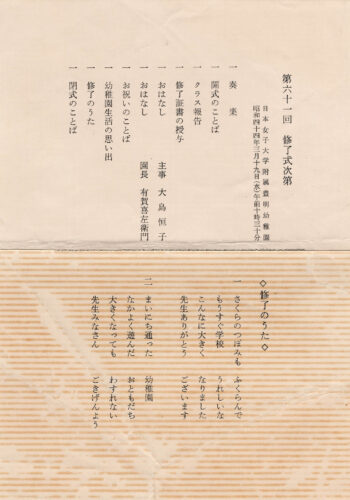 第六十一回　修了式次第
日本女子大学附属豊明幼稚園
昭和四十四年三月十九日（水）午前十時三十分
一　奏楽
一　開式のことば
一　クラス報告
一　修了証書の授与
一　おはなし　主事　大島恒子
一　おはなし　園長　有賀喜左衛門
一　お祝いのことば
一　幼稚園生活の思い出
一　修了のうた
一　閉式のことば
◇修了のうた◇
一　さくらのつぼみも　ふくらんで
もうすぐ学校　うれしいな
こんなに大きく　なりました
先生ありがとう　ございます
二　まいにち通った　幼稚園
なかよく遊んだ　おともだち
大きくなっても　わすれない
先生みなさん　ごきげんよう